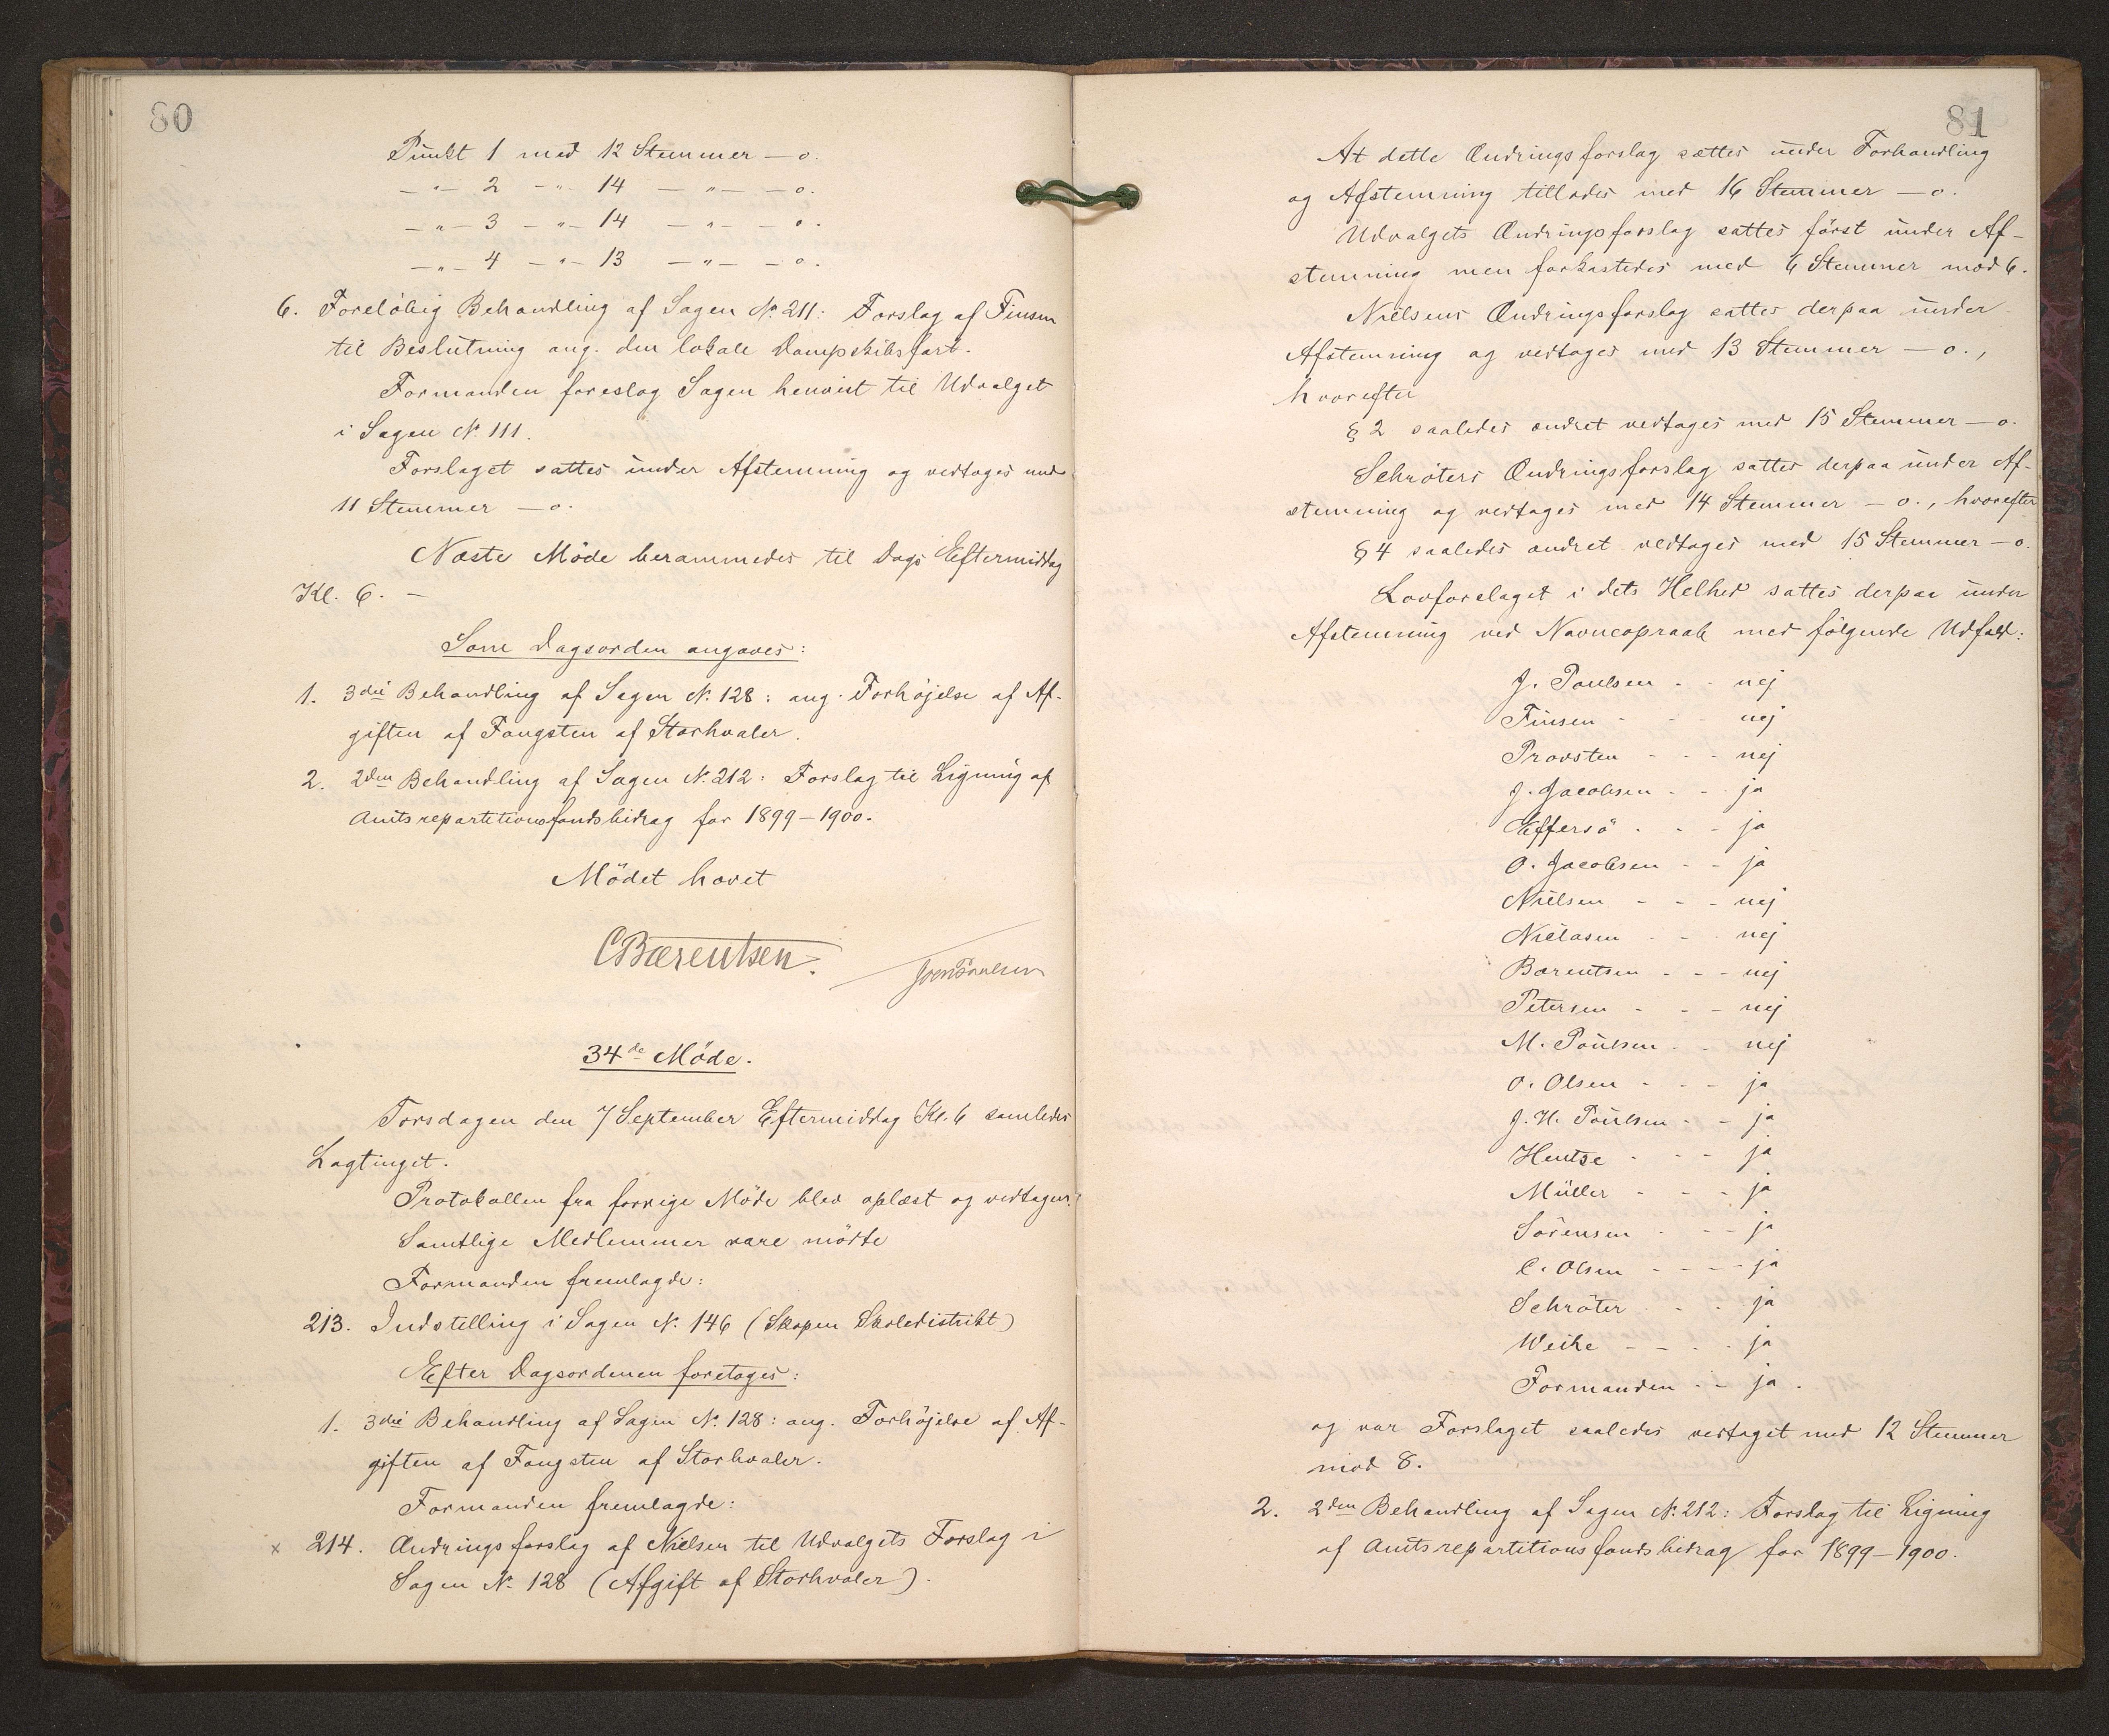 80
Punkt 1 med 12 Stemmer – o.
– " – 2 – " – 14 – " – – o.
– " – 3 – " – 14 – " – – o.
– " – 4 – " – 13 – " – – o.
6. Foreløbig Behandling af Sagen N. 211: Forslag af Finsen
til Beslutning ang. den lokale Dampskibsfart.
Formanden foreslog Sagen henvist til Udvalget
i Sagen N. 111.
Forslaget sattes under Afstemning og vedtoges med
11 Stemmer – o.
Næste Möde berammedes til Dags Eftermiddag
Kl. 6. –
Som Dagsorden angaves:
1. 3die Behandling af Sagen N. 128: ang. Forhöjelse af Af-
giften af Fangsten af Storhvaler.
2. 2den Behandling af Sagen N. 212: Forslag til Ligning af
Amtsrepartitionsfondsbidrag for 1899–1900.
Mödet hævet
CBærentsen.
34de Möde.
Torsdagen den 7 September Eftermiddag Kl. 6 samledes
Lagtinget.
Protokollen fra forrige Möde blev oplæst og vedtagen.
Samtlige Medlemmer vare mödte
Formanden fremlagde:
213. Indstilling i Sagen N. 146 (Skopen Skoledistrikt)
Efter Dagsordenen foretoges:
1. 3die Behandling af Sagen N. 128: ang. Forhöjelse af Af-
giften af Fangsten af Storhvaler.
Formanden fremlagde:
x 214. Ændringsforslag af Nielsen til Udvalgets Forslag i
Sagen N. 128 (Afgift af Storhvaler).
81
At dette Ændringsforslag sættes under Forhandling
og Afstemning tillodes med 16 Stemmer – o.
Udvalgets Ændringsforslag sattes först under Af-
stemning men forkastedes med 6 Stemmer mod 6.
Nielsens Ændringsforslag sattes derpaa under
Afstemning og vedtoges med 13 Stemmer – o.,
hvorefter
§ 2 saaledes ændret vedtoges med 15 Stemmer – o.
Schröters Ændringsforslag sattes derpaa under Af-
stemning og vedtoges med 14 Stemmer – o., hvorefter
§ 4 saaledes ændret vedtoges med 15 Stemmer – o.
Lovforslaget i dets Helhed sattes derpaa under
Afstemning ved Navneopraab med fölgende Udfald:
J. Poulsen - - nej
Finsen - - - nej
Provsten - - - nej
J. Jacobsen - - ja
Effersö - - - ja
O. Jacobsen - - ja
Nielsen - - - nej
Niclasen - - - nej
Bærentsen - - - nej
Petersen - - - nej
M. Poulsen - - nej
O. Olsen - - - ja
J. H. Poulsen - - ja
Hentze - - - ja
Müller - - - ja
Sörensen - - - ja
C. Olsen - - - - ja
Schröter - - - ja
Weihe - - - - ja
Formanden - - ja.
og var Forslaget saaledes vedtaget med 12 Stemmer
mod 8.
2. 2den Behandling af Sagen N. 212: Forslag til Ligning
af Amtsrepartitionsfondsbidrag for 1899–1900.